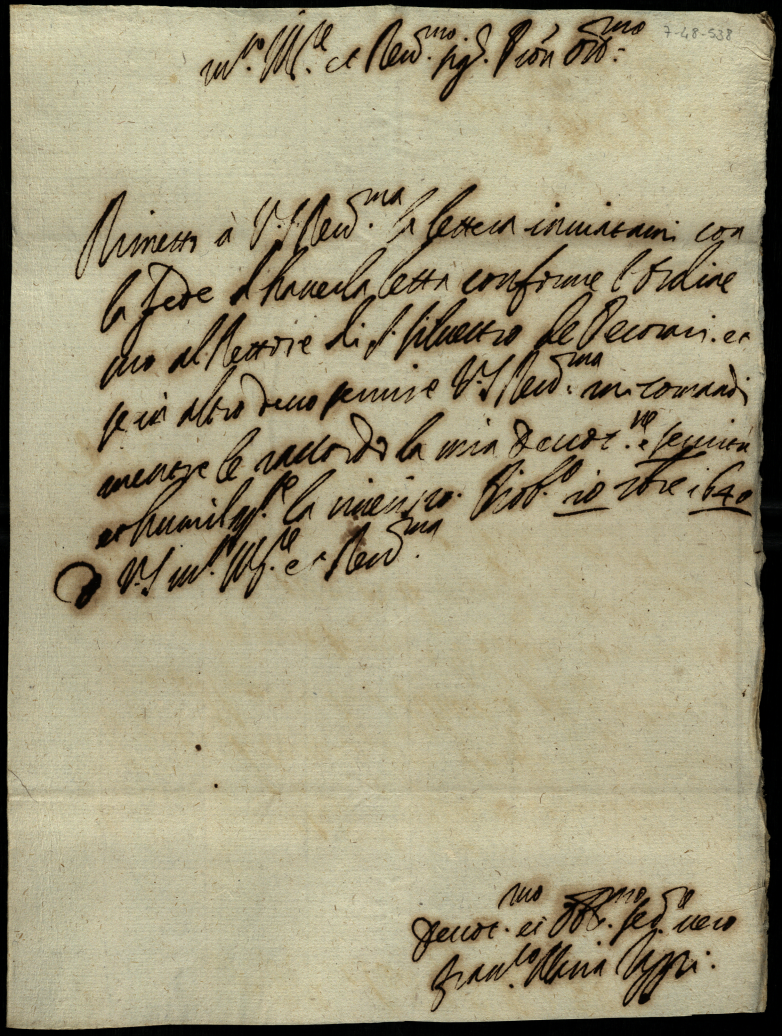 7-48-538
m.to Ill.re et Reu.mo sig.r P.ron Oss.mo
Rimetto à V.S. Reu.ma la lettera inuiatami con
la fede d'hauerla letta conforme l'ordine
suo al Rettore di S. Siluestro de Pecorari. et
se in altro deuo seruire V.S. Reu.ma mi comandi
mentre le raccordo la mia deuot.ne e seruitù
et humilm.te la riuerisco. 10 xbre 1640
D V.S. m.to Ill.re et Reu.ma
Deuot.mo et Obb.mo ser.re uero
Fran.co Maria